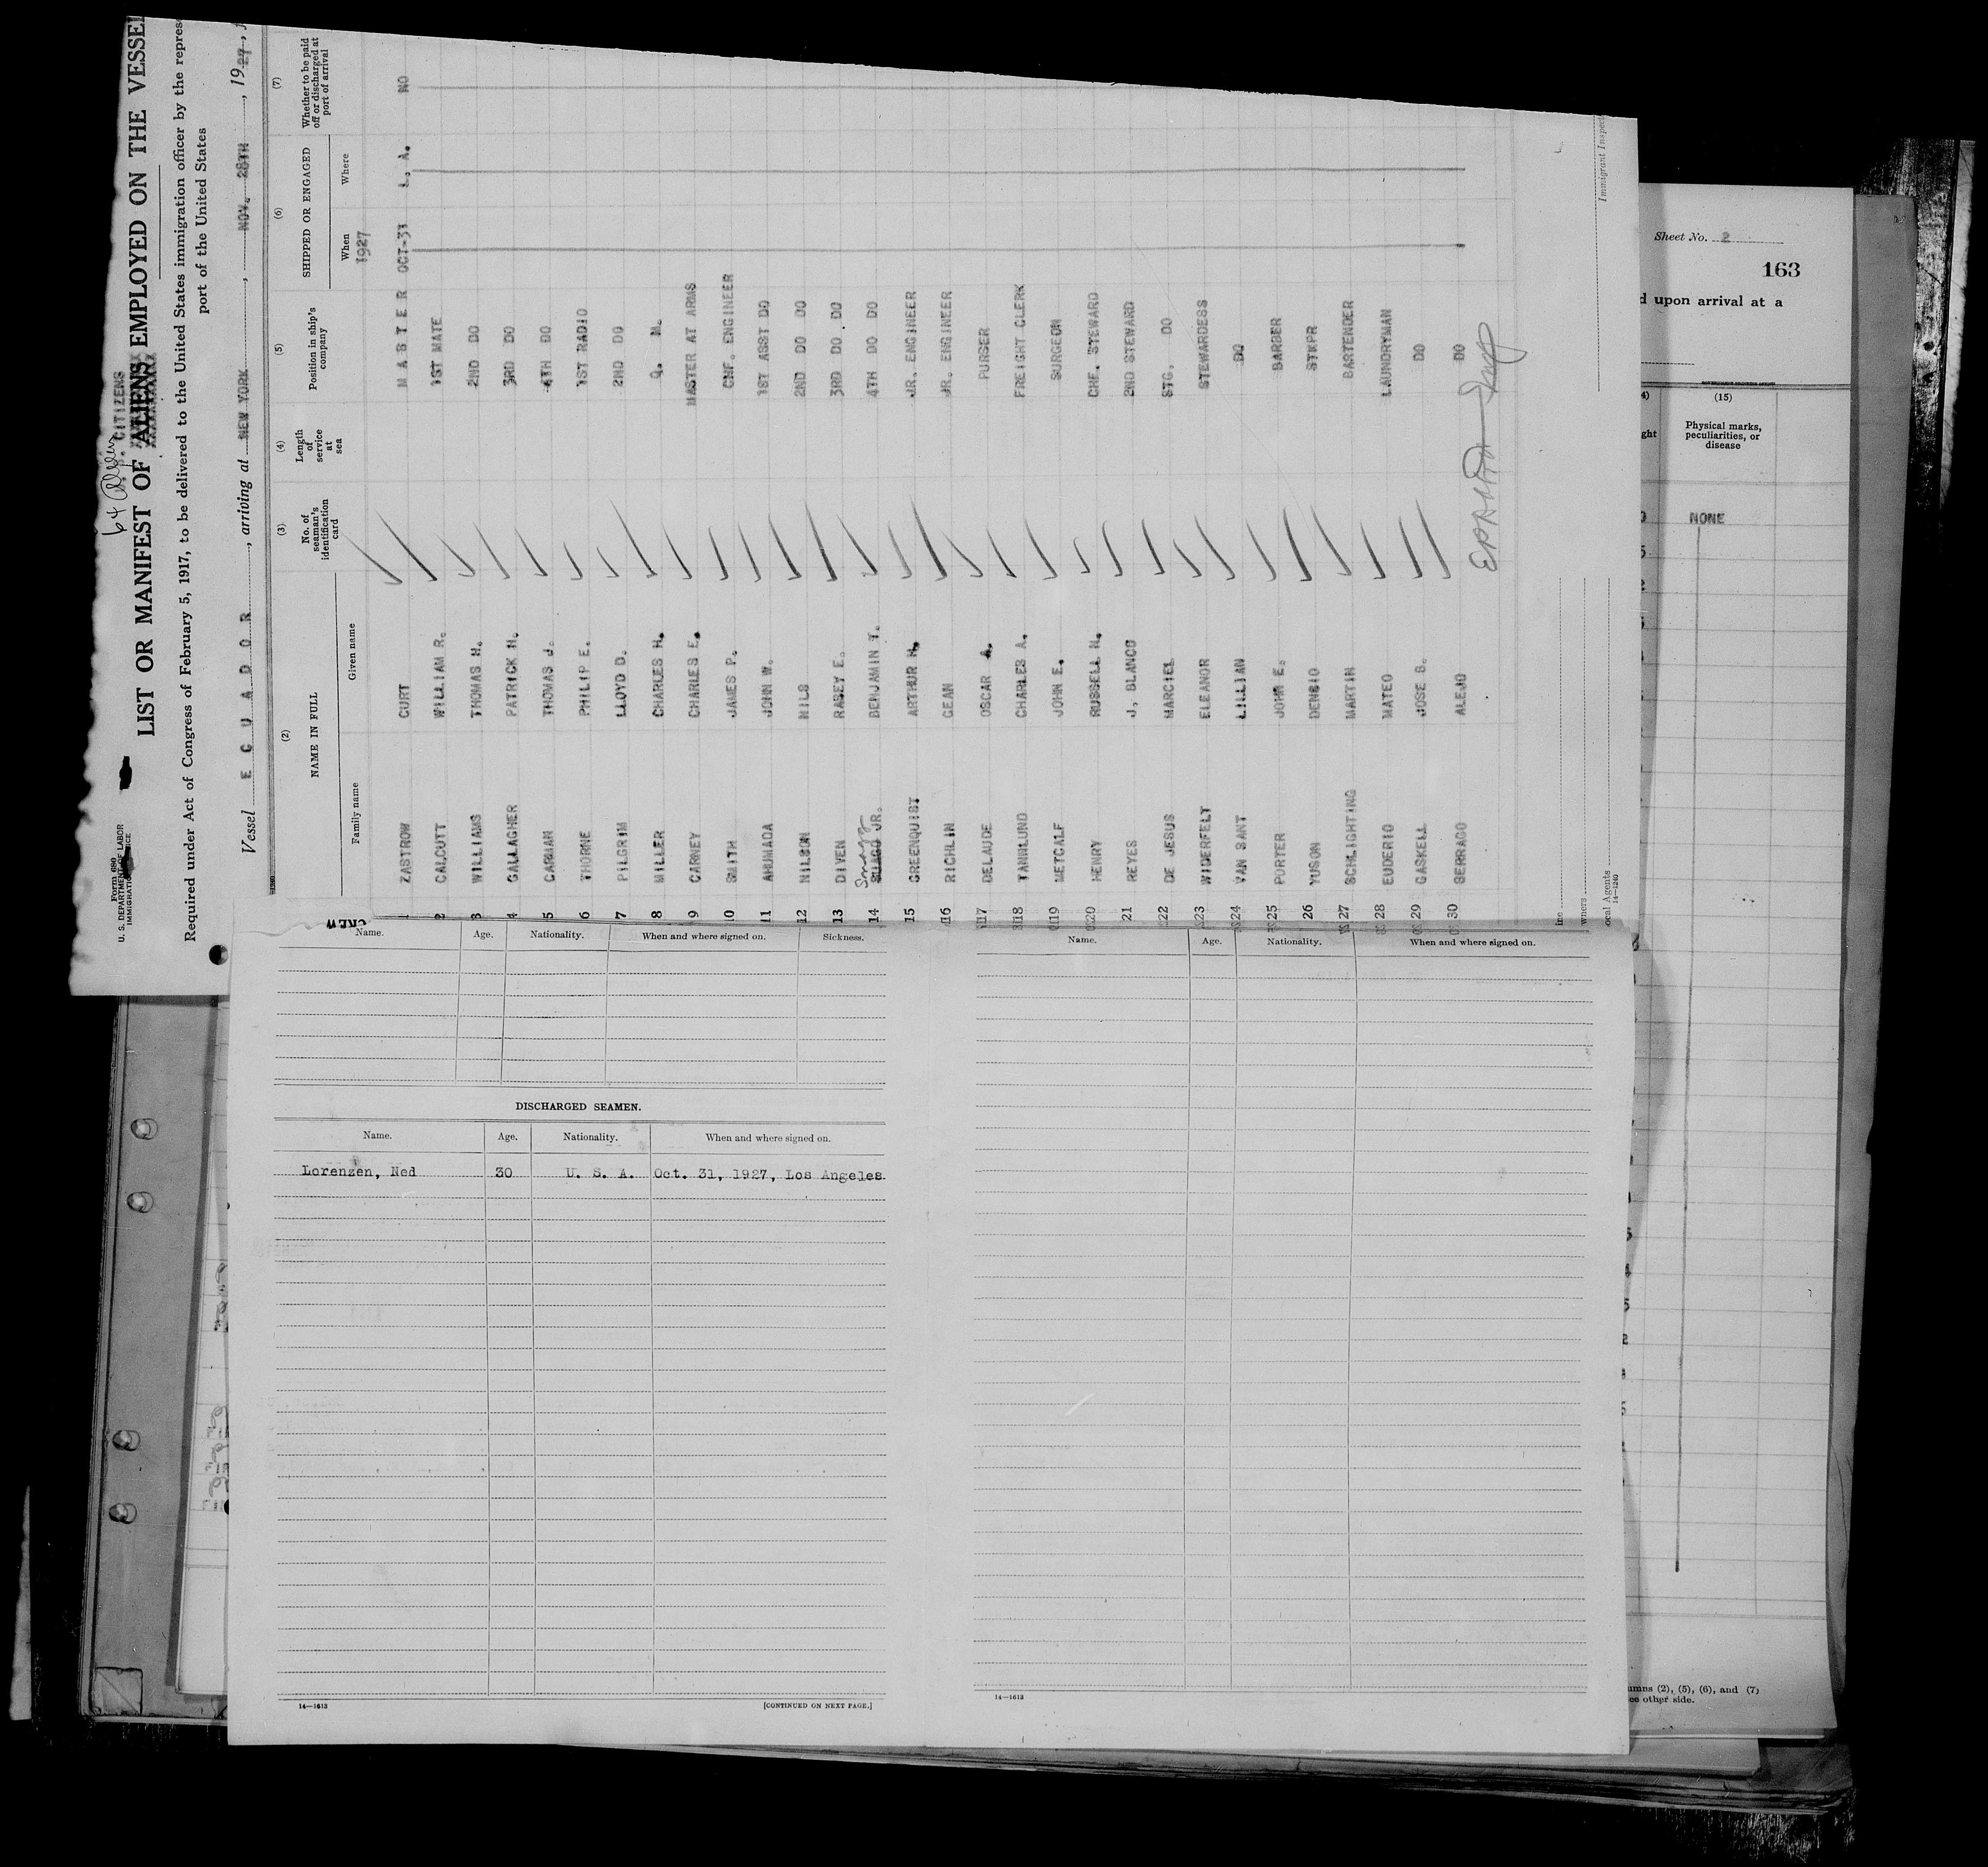 Form 680
U. S. DEPARTMENT OF LABOR
IMMIGRATION
64
CITIZENS
LIST OR MANIFEST OF ALIENS EMPLOYED ON THE VESSEL
Required under Act of Congress of February 5, 1917, to be delivered to the United States immigration officer by the repres
port of the United States
Vessel E C U A D O R, arriving at NEW YORK, NOV. 28TH, 1927,
(2) (3) (4) (5) (6) (7)
NAME IN FULL No. of seaman's identification card Length of service at sea Position in ship's company SHIPPED OR ENGAGED Whether to be paid off or discharged at port of arrival
Family name Given name When Where
1927
CREW
1 ZASTROW CURT M A S T E R OCT-31 L. A. NO
2 CALCUTT WILLIAM R. 1ST MATE
3 WILLIAMS THOMAS H. 2ND DO
4 GALLAGHER PATRICK H. 3RD DO
5 CARMAN THOMAS J. 4TH DO
6 THORNE PHILIP E. 1ST RADIO
7 PILGRIM LLOYD D. 2ND DO
8 MILLER CHARLES H. Q. M.
9 CARNEY CHARLES E. MASTER AT ARMS
10 SMITH JAMES P. CHF. ENGINEER
11 AHUMADA JOHN W. 1ST ASST DO
12 NILSON NILS 2ND DO DO
13 DIVEN RASEY E. 3RD DO DO
14 JR. BENJAMIN T. 4TH DO DO
15 GREENQUIST ARTHUR H. JR. ENGINEER
16 RICHLIN GEAN JR. ENGINEER
17 DELAUDE OSCAR A. PURSER
18 TANNLUND CHARLES A. FREIGHT CLERK
19 METCALF JOHN E. SURGEON
20 HENRY RUSSELL N. CHF. STEWARD
21 REYES J. BLANCO 2ND STEWARD
22 DE JESUS MARCIEL STG. DO
23 WIDERFELT ELEANOR STEWARDESS
24 VAN SANT LILLIAN DO
25 PORTER JOHN E. BARBER
26 YUSON DENSIO STKPR
27 SCHLIGHTING MARTIN BARTENDER
28 EUDERIO MATEO LAUNDRYMAN
29 GASKELL JOSE S. DO
30 SERRAGO ALEJO DO
Immigrant Inspect
ine
wners
ocal Agents
14-1240
Sheet No. 2
163
d upon arrival at a
4) (15)
ght Physical marks, peculiarities, or disease
NONE
umns (2), (5), (6), and (7)
ee other side.
Name. Age. Nationality. When and where signed on. Sickness.
DISCHARGED SEAMEN.
Name. Age. Nationality. When and where signed on.
Lorenzen, Ned 30 U. S. A. Oct. 31, 1927, Los Angeles
14—1613 [CONTINUED ON NEXT PAGE.]
Name. Age. Nationality. When and where signed on.
14—1613